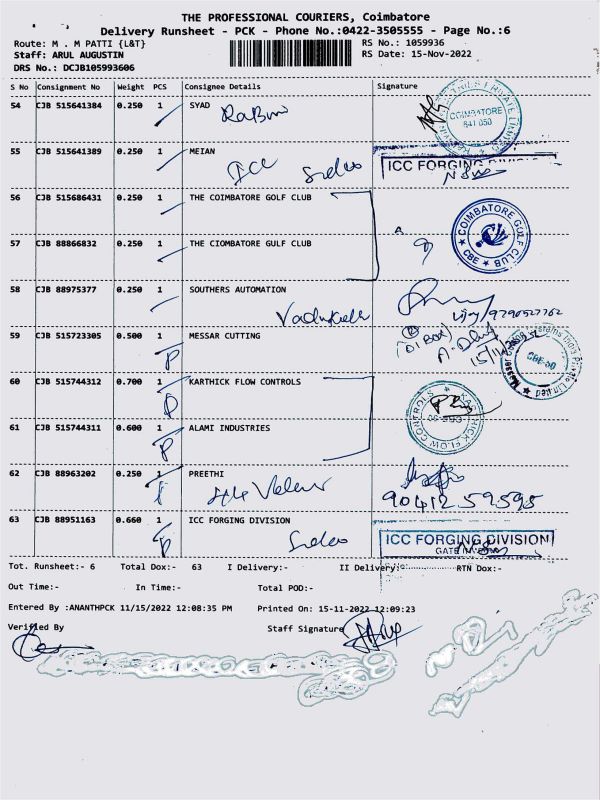 THE PROFESSIONAL COURIERS, Coimbatore
Delivery Runsheet - PCK - Phone No.:0422-3505555 - Page No.:6
Route: M . M PATTI {L&T}
RS No.: 1059936
Staff: ARUL AUGUSTIN
RS Date: 15-Nov-2022
DRS No.: DCJB105993606
S No Consignment No Weight PCS Consignee Details Signature
54 CJB 515641384 0.250 1 SYAD
COIMBATORE
641 050
55 CJB 515641389 0.250 1 MEIAN
ICC Sidco
ICC FORGING DIVISION
56 CJB 515686431 0.250 1 THE COIMBATORE GOLF CLUB
COIMBATORE GOLF CLUB
★ CBE ★
57 CJB 88866832 0.250 1 THE CIOMBATORE GOLF CLUB
58 CJB 88975377 0.250 1 SOUTHERS AUTOMATION
59 CJB 515723305 0.500 1 MESSAR CUTTING
P
CBE-50
60 CJB 515744312 0.700 1 KARTHICK FLOW CONTROLS
P
KARTHICK FLOW CONTROLS
61 CJB 515744311 0.600 1 ALAMI INDUSTRIES
P
62 CJB 88963202 0.250 1 PREETHI
90412 59595
63 CJB 88951163 0.660 1 ICC FORGING DIVISION
P
Sidco
ICC FORGING DIVISION
Tot. Runsheet:- 6 Total Dox:- 63 I Delivery:- II Delivery:- RTN Dox:-
Out Time:- In Time:- Total POD:-
Entered By :ANANTHPCK 11/15/2022 12:08:35 PM Printed On: 15-11-2022 12:09:23
Verified By Staff Signature